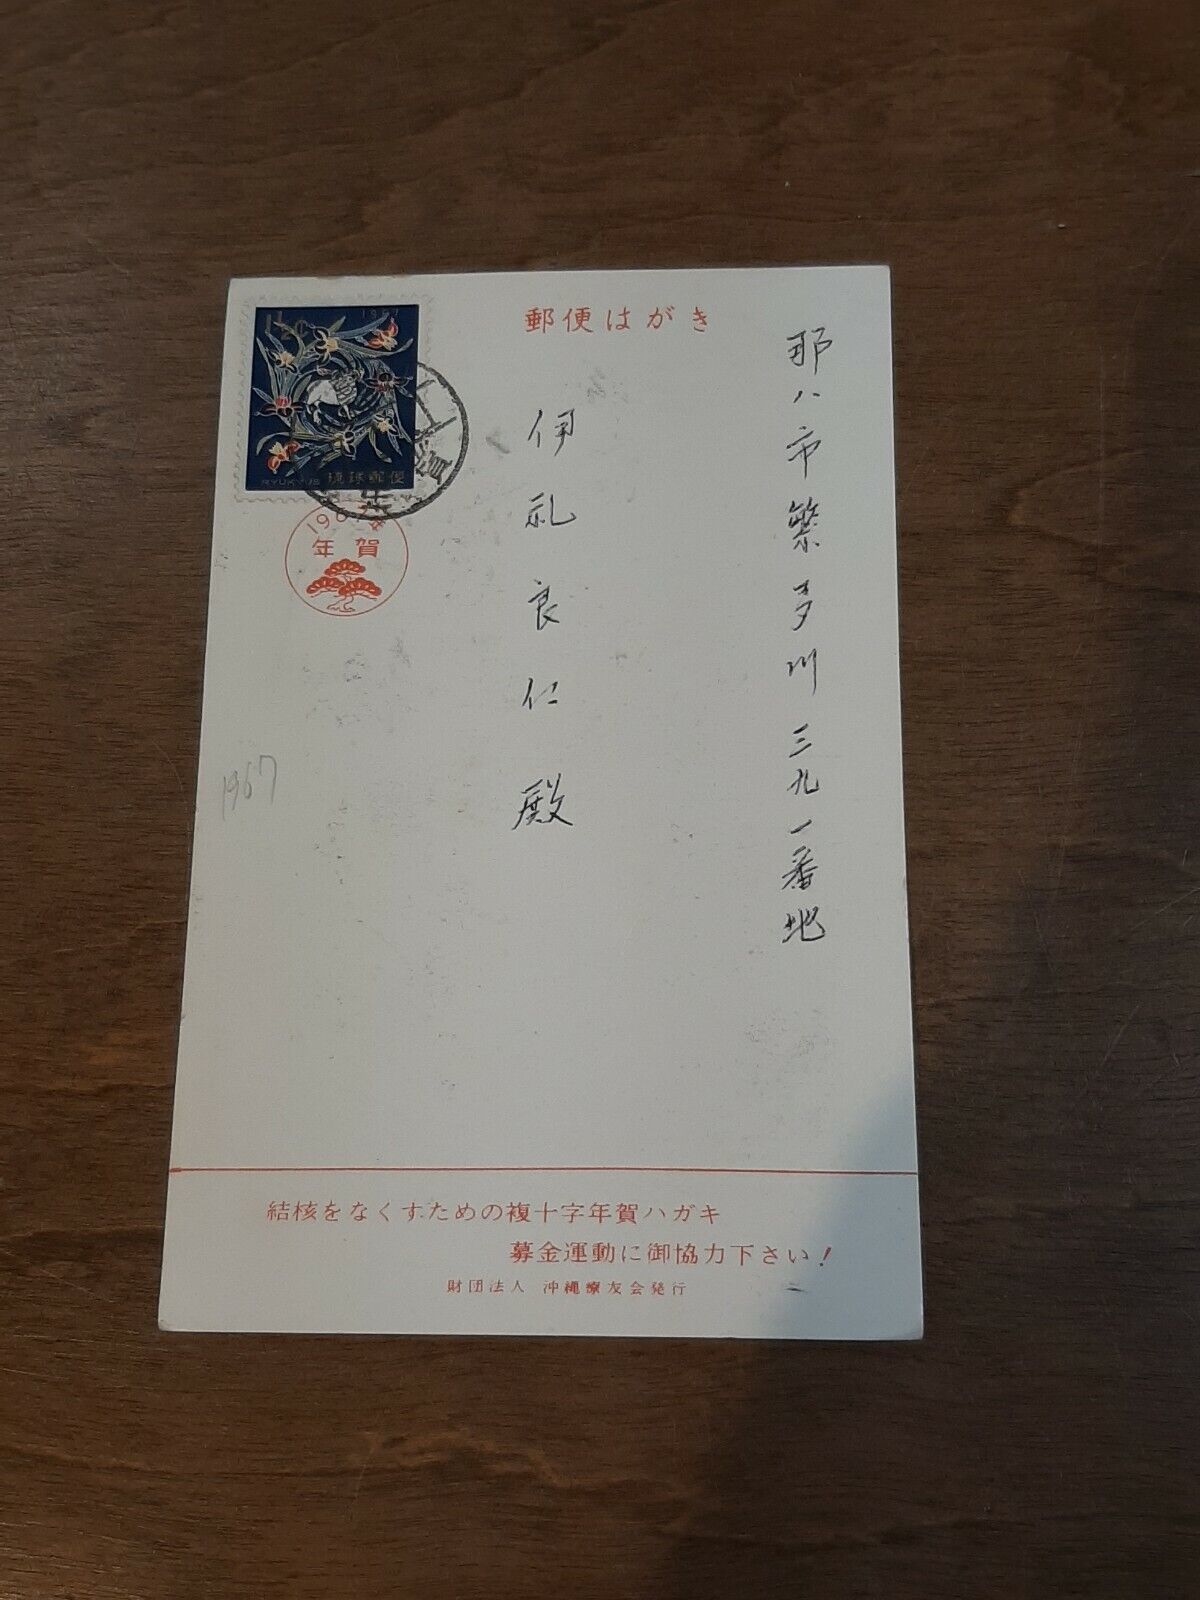 郵便はがき
那八市繁多川三九一番地
伊礼良仁殿
1967
RYUKYUS 琉球郵便
年賀
1967
結核をなくすための複十字年賀ハガキ
募金運動に御協力下さい!
財団法人 沖縄療友会発行